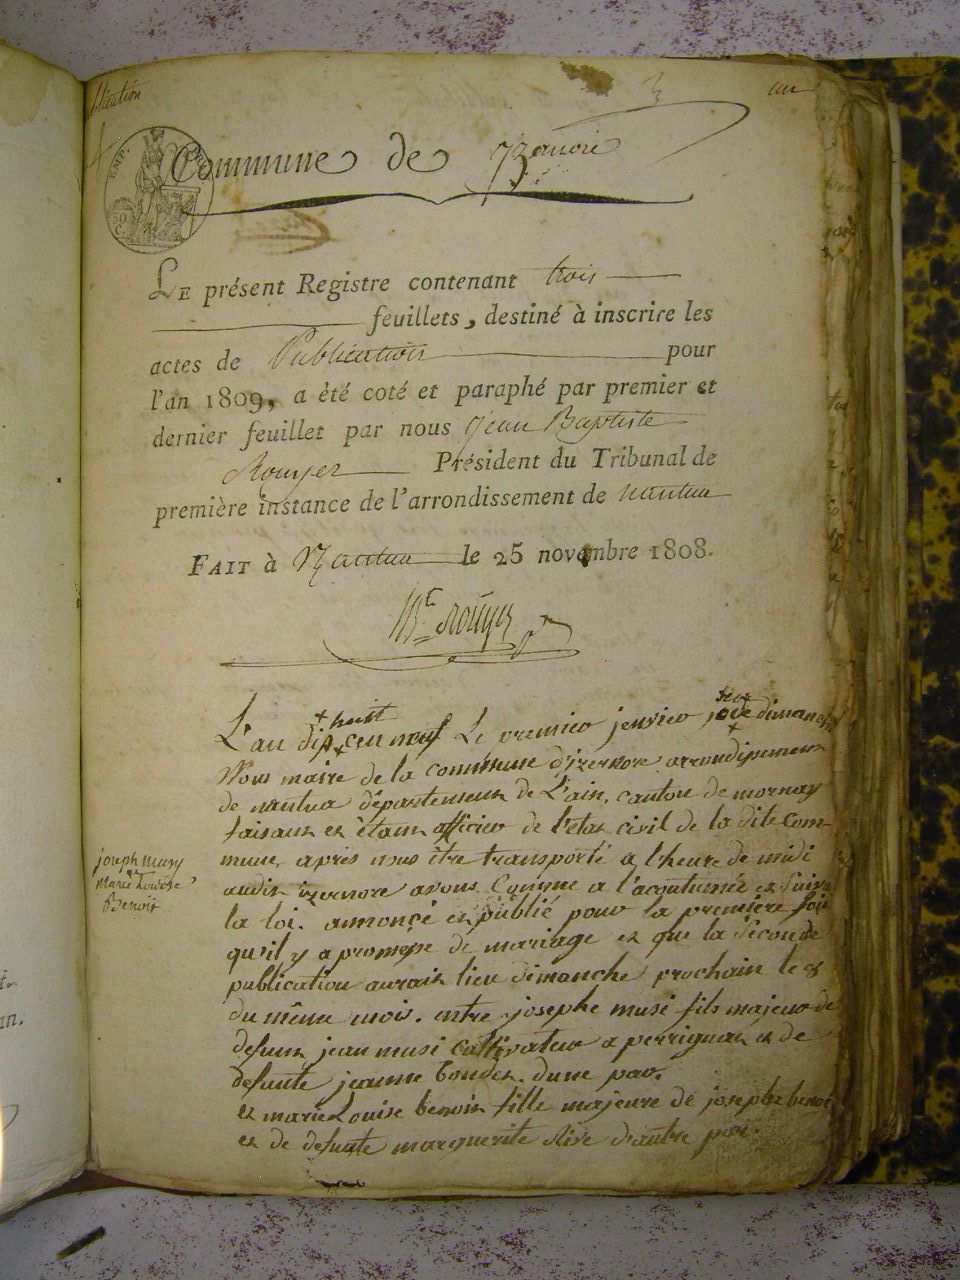 EMP.
50
C.
Commune de Izernore
LE présent Registre contenant trois
feuillets, destiné à inscrire les
actes de Publication pour
l'an 1809, a été coté et paraphé par premier et
dernier feuillet par nous Jean Baptiste
Rouyer Président du Tribunal de
première instance de l'arrondissement de nantua
FAIT à Nantua le 25 novembre 1808.
Bte Rouyer
L'an dix huit cen neuf Le premier jenvier jour dimanche
Nous maire de la commune d'izernore arrondissement
de nantua département de L'ain, canton de mornay
faisant et étant officier de l'état civil de la dite Com-
mune, après nous être transporté a l'heure de midi
audit izernore avons Comme a l'acoutumée et suivt
la loi. annonçé et publié pour la première fois
qu'il y a promesse de mariage et que la seconde
publication aurait lieu dimanche prochain le 8
du même mois. entre josephe musi fils majeur de
defunt jean musi Cultivateur a perrignat et de
defunte jeanne bondet. dune par.
et marie Louise benoit fille majeure de josephe benoit
et de defunte marguerite olive d'autre par.
joseph musy
et
Marie Louise
Benoit